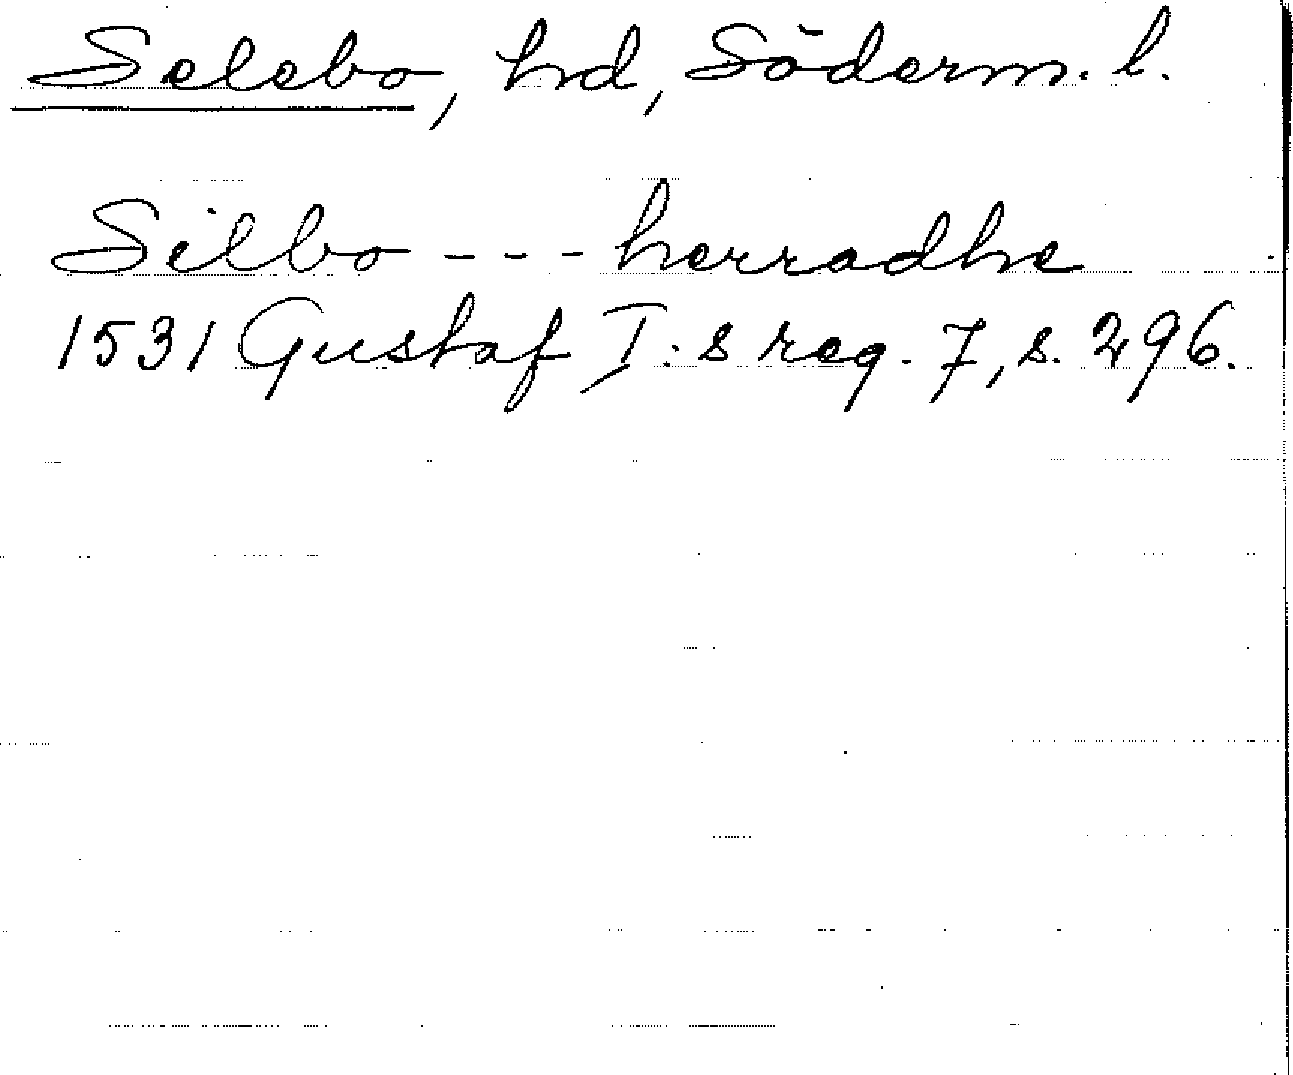 Selebo, hd, Söderm. l.
Silbo --- herradhe
1531 Gustaf I:s reg. 7, s. 296.